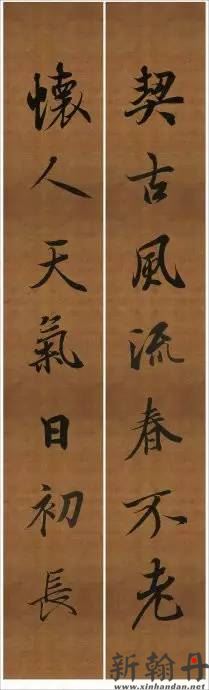 契古風流春不老
懷人天氣日初長
新翰丹
www.xinhandan.net